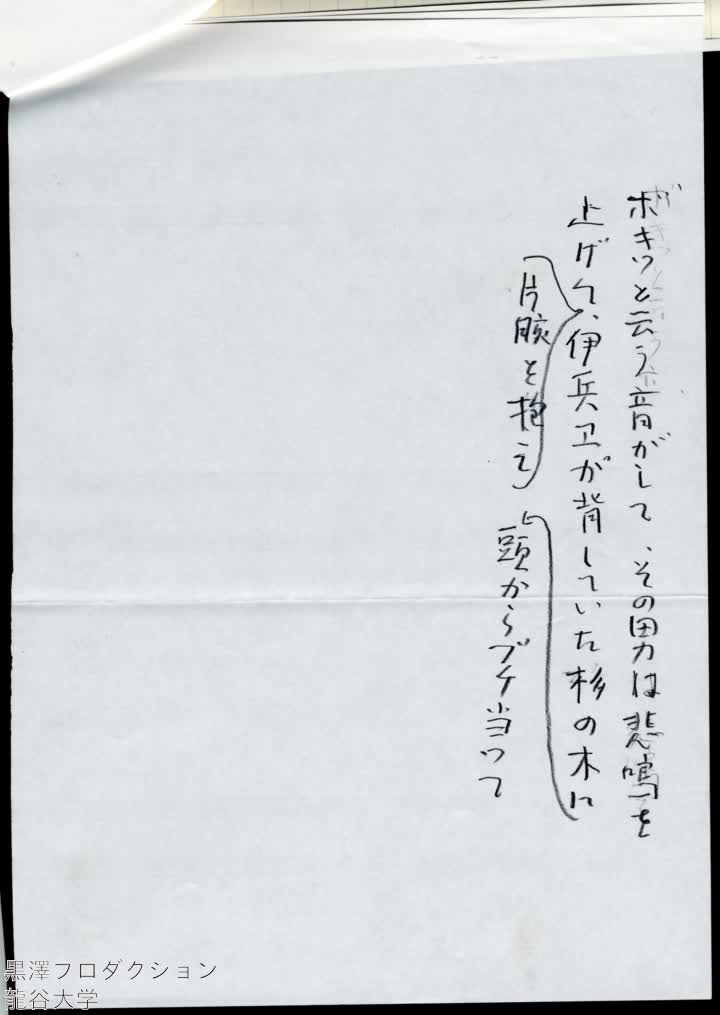 ボキッと云う音がして、その男は悲鳴を
上げて、伊兵卫が背していた杉の木に
片腕を抱え
頭からブチ当って
黒澤プロダクション
龍谷大学